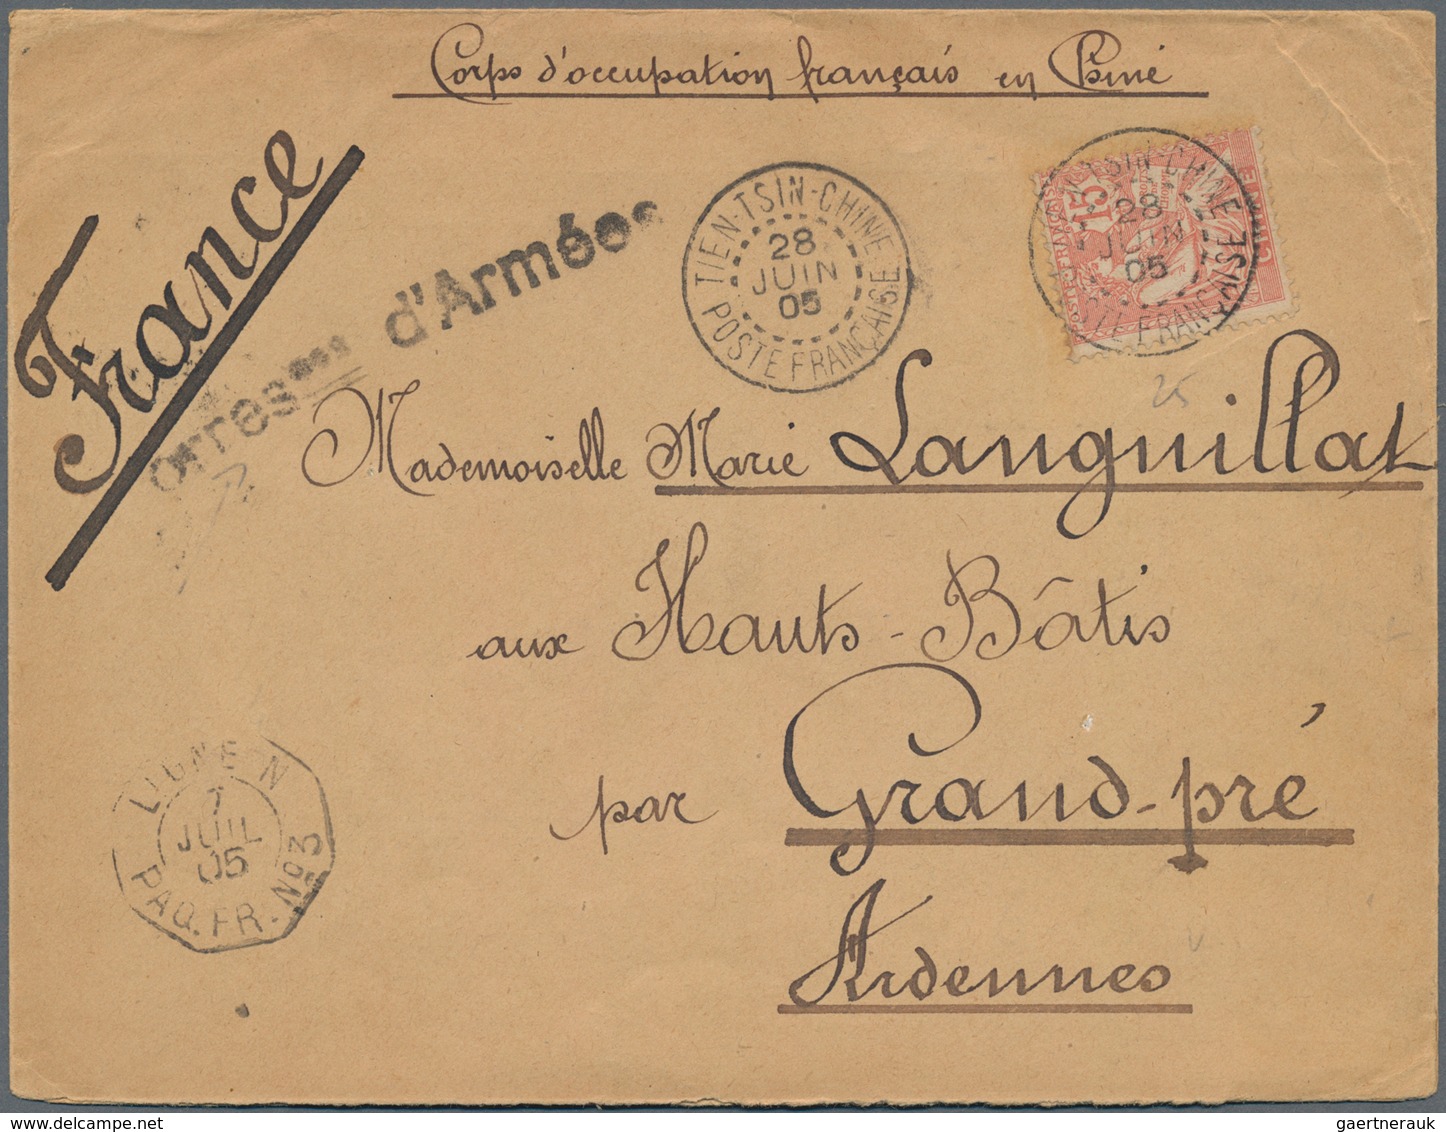 Corps d'occupation français en Chine
France
Corresces d'Armées
TIEN-TSIN-CHINE
28
JUIN
05
POSTE FRANÇAISE
TIEN-TSIN-CHINE
28
JUIN
05
POSTE FRANÇAISE
15
POSTE FRANÇAISE
CHINE
25
Mademoiselle Marie Languillat
aux Hauts-Bâtis
par Grand-pré
Ardennes
LIGNE N
7
JUIL
05
PAQ. FR. Nº3
gaertnerauk @ delcampe.net